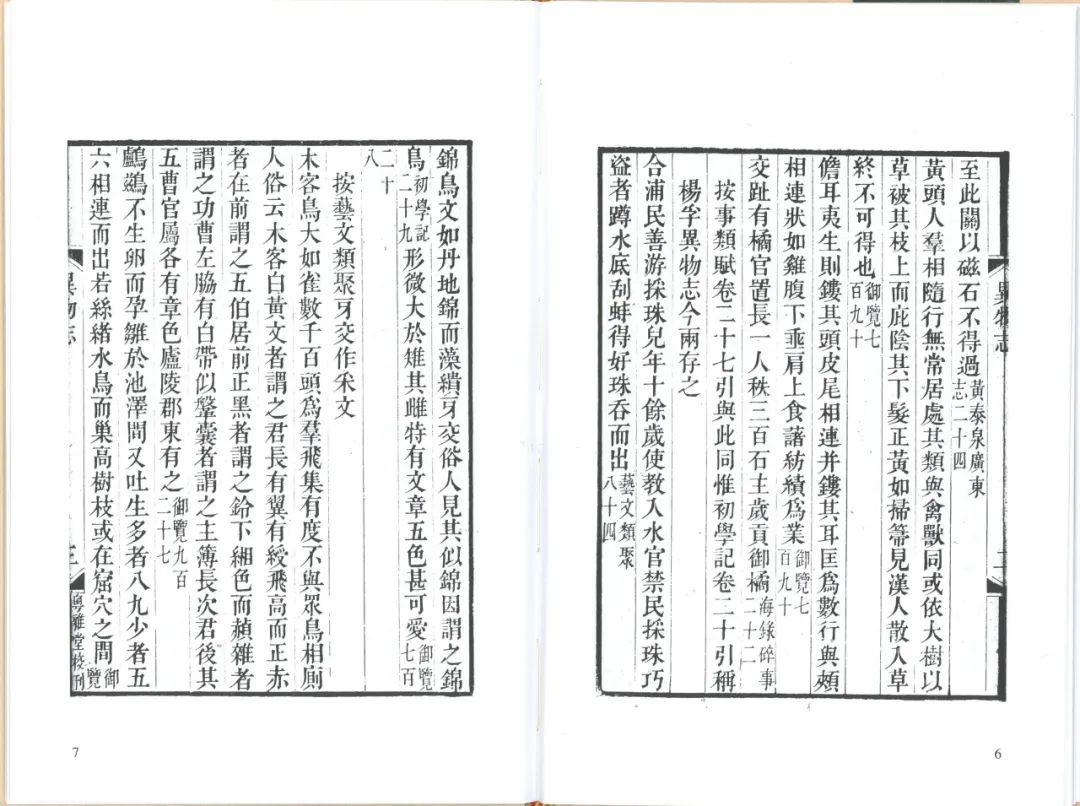 至此關以磁石不得過黃泰泉廣東志二十四
黃頭人羣相隨行無常居處其類與禽獸同或依大樹以
草被其枝上而庇陰其下髮正黃如掃箒見漢人散入草
終不可得也御覽七百九十
儋耳夷生則鏤其頭皮尾相連并鏤其耳匡為數行與頰
相連狀如雞腹下垂肩上食藷紡績為業御覽七百九十
交趾有橘官置長一人秩三百石主歲貢御橘海錄碎事二十二
按事類賦卷二十七引與此同惟初學記卷二十引稱
楊孚異物志今兩存之
合浦民善游採珠兒年十餘歲使教入水官禁民採珠巧
盜者蹲水底刮蚌得好珠吞而出藝文類聚八十四
異物志
二
6
錦鳥文如丹地錦而藻繢牙交俗人見其似錦因謂之錦
鳥初學記二十九形微大於雉其雌特有文章五色甚可愛御覽七百
二十八
按藝文類聚牙交作采文
木客鳥大如雀數千百頭為羣飛集有度不與眾鳥相厠
人俗云木客白黃文者謂之君長有翼有綬飛高而正赤
者在前謂之五伯居前正黑者謂之鈴下緗色而頳雜者
謂之功曹左脇有白帶似鞶囊者謂之主簿長次君後其
五曹官屬各有章色廬陵郡東有之御覽九百二十七
鸕鷀不生卵而孕雛於池澤間又吐生多者八九少者五
六相連而出若絲緒水鳥而巢高樹枝或在窟穴之間御覽
異物志
三
粵雅堂校刊
7